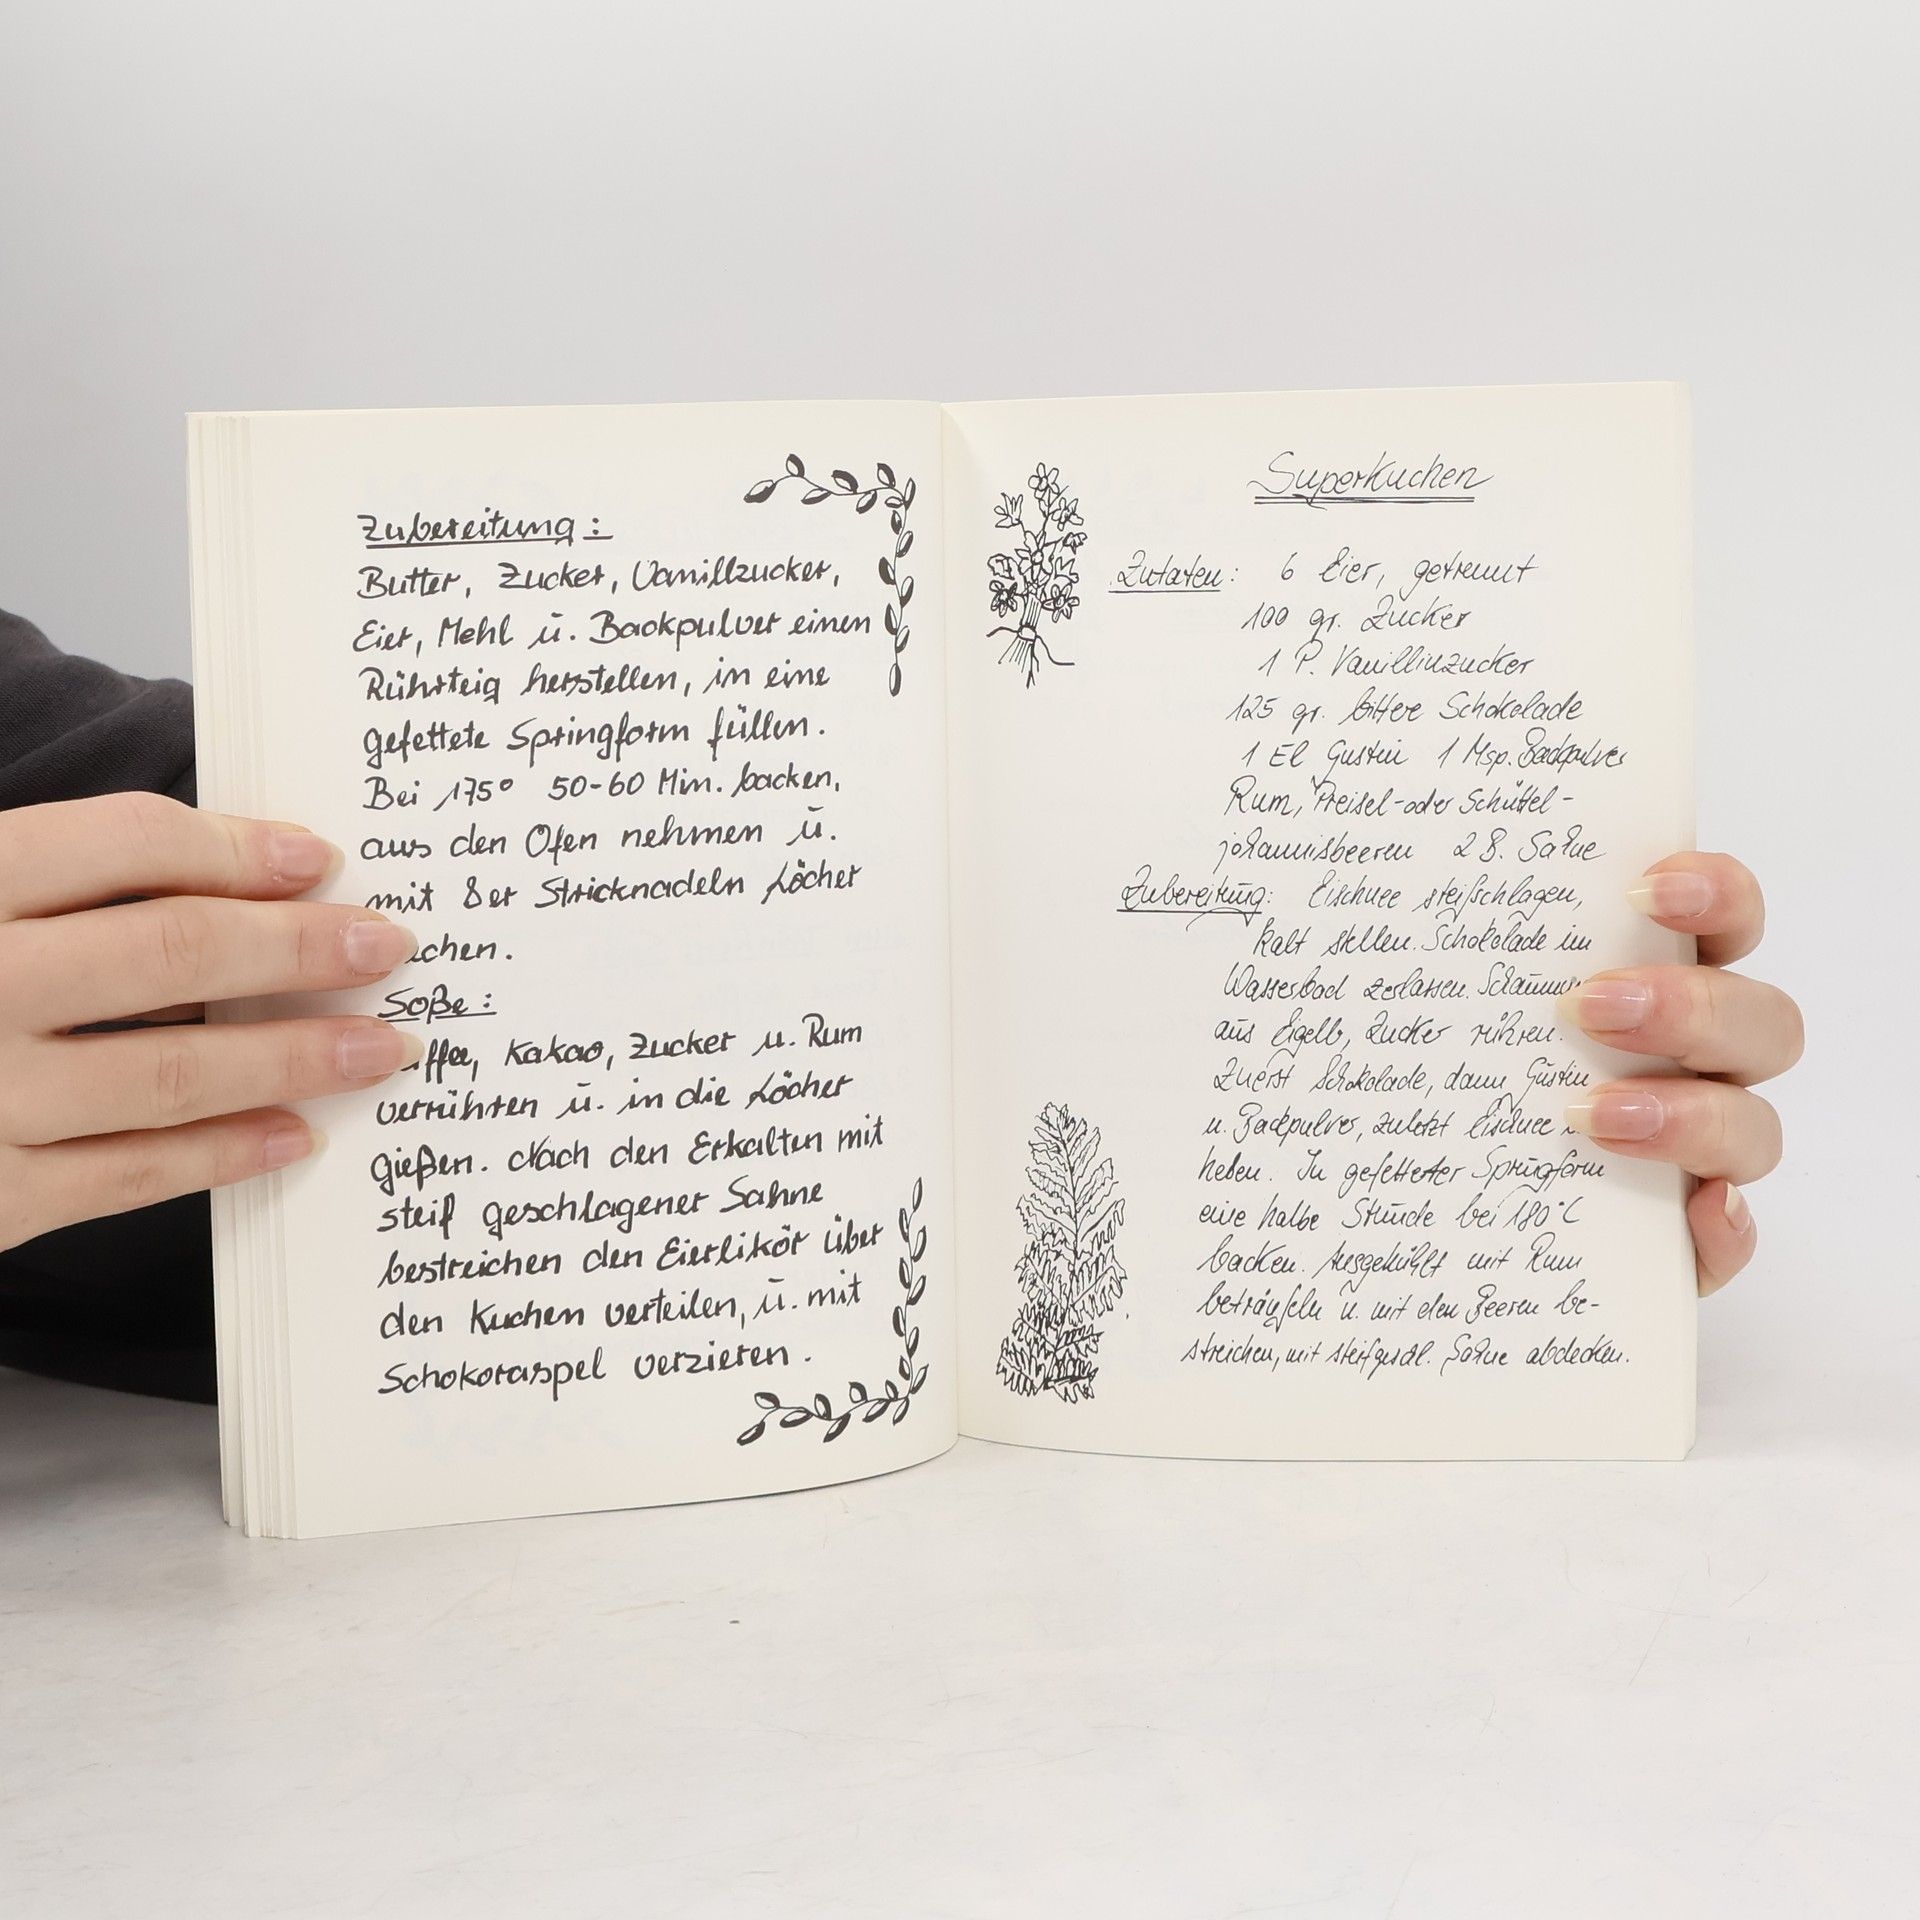 Zubereitung:
Butter, Zucker, Vanillzucker,
Eier, Mehl u. Backpulver einen
Rührteig herstellen, in eine
gefettete Springform füllen.
Bei 175° 50-60 Min. backen,
aus den Ofen nehmen u.
mit 8er Stricknadeln Löcher
chen.
Soße:
affee, Kakao, Zucker u. Rum
verrühren u. in die Löcher
gießen. Nach den Erkalten mit
steif geschlagener Sahne
bestreichen den Eierlikör über
den Kuchen verteilen, u. mit
Schokoraspel verzieren.
Superkuchen
Zutaten: 6 Eier, getrennt
100 gr. Zucker
1 P. Vanillinzucker
125 gr. bittere Schokolade
1 El Gustin 1 Msp. Backpulver
Rum, Preisel-oder Schüttel-
johannisbeeren 2 B. Sahne
Zubereitung: Eischnee steifschlagen,
kalt stellen. Schokolade im
Wasserbad zerlassen.
aus Eigelb, Zucker rühren.
Zuerst Schokolade, dann Gustin
u. Backpulver, zuletzt Eischnee
heben. In gefetteter Springform
eine halbe Stunde bei 180°C
backen. Ausgekühlt mit Rum
beträufeln u. mit den Beeren be-
streichen, mit steifgeschl. Sahne abdecken.